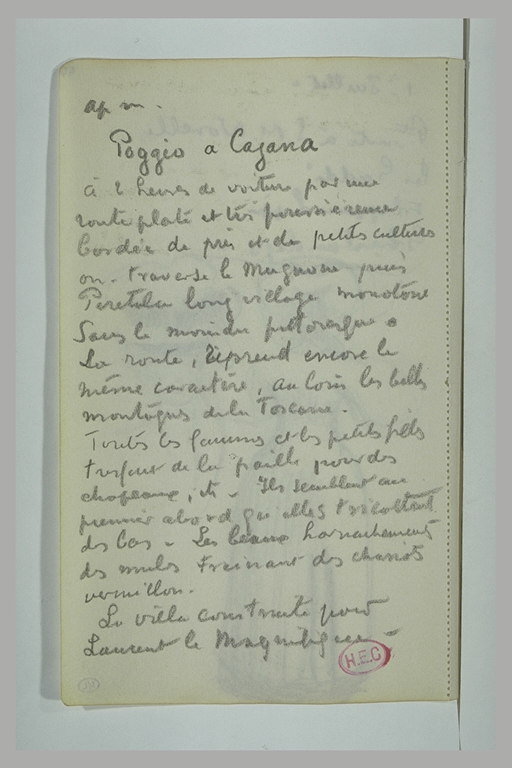 ap m.
Poggio a Cajana
à 2 heures de voiture par une
route plate et très poussiéreuse
bordée de prés et de petits cultures
on traverse le Mugnone puis
Peretola long village monotone
Sans le moindre pittoresque.
La route, reprend encore le
même caractère, au loin les belles
montagnes de la Toscane.
Toutes les femmes et les petites filles
tressent de la paille pour des
chapeaux, etc. Ils semblent au
premier abord qu'elles tricottent
des bas. Les beaux harnachements
des mules trainant des chariots
vermillon.
La villa construite pour
Laurent le Magnifique
H.E.C